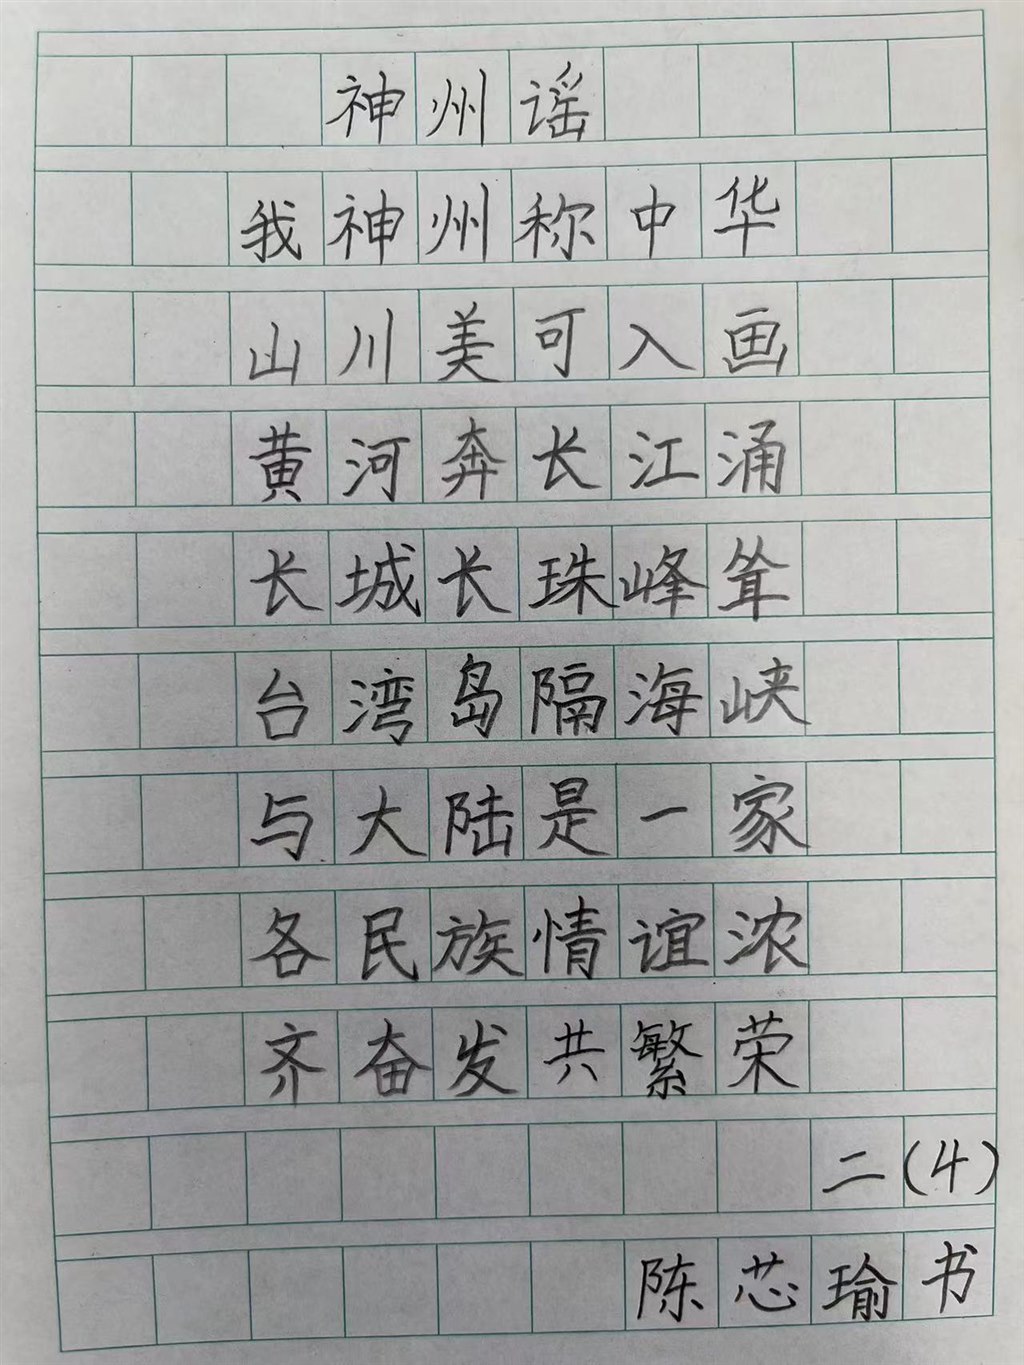 神州谣
我神州称中华
山川美可入画
黄河奔长江涌
长城长珠峰耸
台湾岛隔海峡
与大陆是一家
各民族情谊浓
齐奋发共繁荣
二(4)
陈芯瑜书